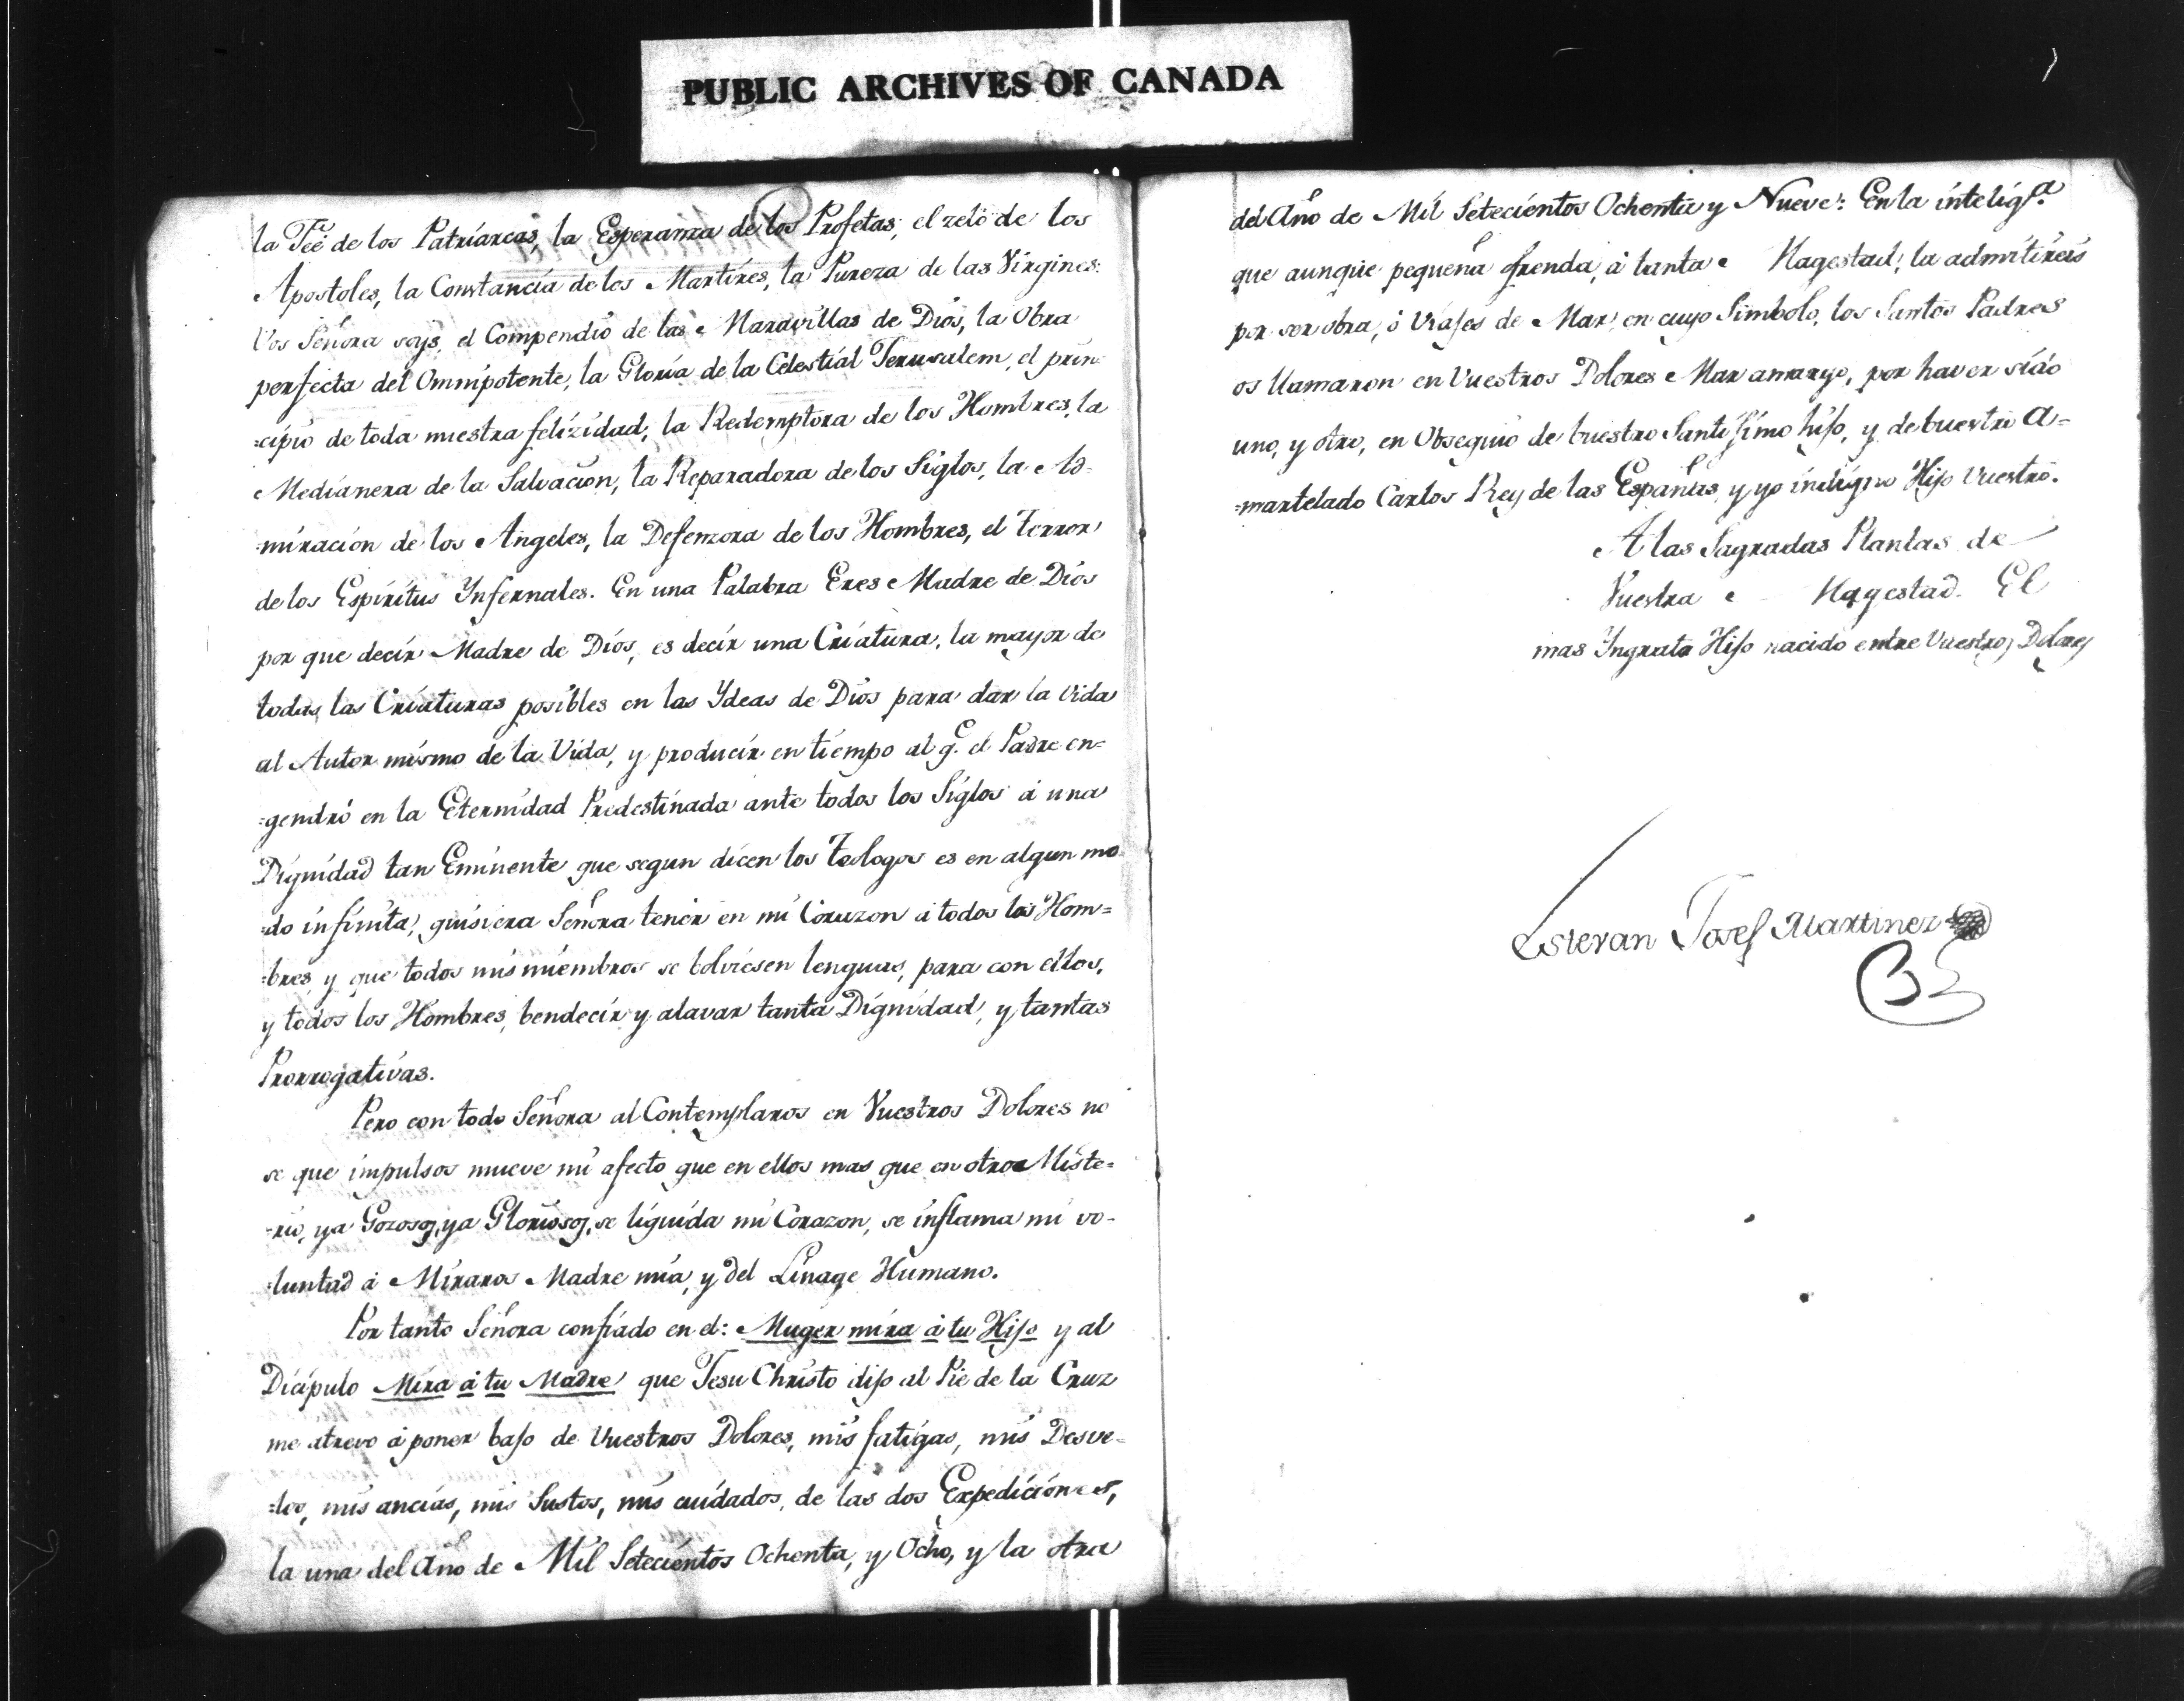 PUBLIC ARCHIVES OF CANADA
la Feé de los Patriarcas, la Esperanza de los Profetas, el zelo de los
Apostoles, la Constancia de los Martires, la Pureza de las Virgines:
Vos Señora soys, el Compendio de las Maravillas de Dios, la Obra
perfecta del Omnipotente, la Gloria de la Celestial Jerusalem, el prin=
=cipio de toda nuestra felizidad, la Redemptora de los Hombres, la
Medianera de la Salvacion, la Reparadora de los Siglos, la Ad=
=miracion de los Angeles, la Defenzora de los Hombres, el terror
de los Espiritus Ynfernales. En una Palabra Eres Madre de Dios
por que decir Madre de Dios, es decir una Criatura, la mayor de
todas las Criaturas posibles en las Ydeas de Dios para dar la vida
al Autor mismo de la Vida, y producir en tiempo al q.e el Padre en=
=gendró en la Eternidad Predestinada ante todos los Siglos á una
Dignidad tan Eminente que segun dicen los Teologos es en algun mo=
=do infinita, quisiera Señora tener en mi Corazon á todos los Hom=
=bres, y que todos mis miembros se bolviesen lenguas, para con ellos,
y todos los Hombres, bendecir y alavar tanta Dignidad, y tantas
Prorrogativas.
Pero con todo Señora al Contemplaros en Vuestros Dolores no
se que impulsos mueve mi afecto que en ellos mas que en otro Miste=
=rio, ya Gozosos, ya Gloriosos, se liquida mi Corazon, se inflama mi vo=
=luntad á Miraros Madre mia, y del Linage Humano.
Por tanto Señora confiado en el: Muger mira á tu Hijo y al
Dicipulo Mira á tu Madre que Jesu Christo dijo al Pie de la Cruz
me atrevo á poner bajo de Vuestros Dolores, mis fatigas, mis Desve=
=los, mis ancias, mis Sustos, mis cuidados, de las dos Expediciones,
la una del Año de Mil Setecientos Ochenta, y Ocho, y la otra
del Año de Mil Setecientos Ochenta y Nueve: En la intelig.a
que aunque pequeña frenda, á tanta Magestad, la admitireis
por ser obra, ó Viajes de Mar, en cuyo Simbolo, los Santos Padres
os llamaron en Vuestros Dolores Mar amargo, por haver sido
uno, y otro, en Obsequio de buestro Santisimo hijo, y de buestro A=
=martelado Carlos Rey de las Españas, y yo indigno Hijo Vuestro.
A las Sagradas Plantas de
Vuestra Magestad. El
mas Yngrato Hijo nacido entre Vuestros Dolores
Estevan Josef Martinez